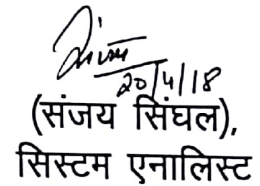 20/4/18
(संजय सिंघल),
सिस्टम एनालिस्ट